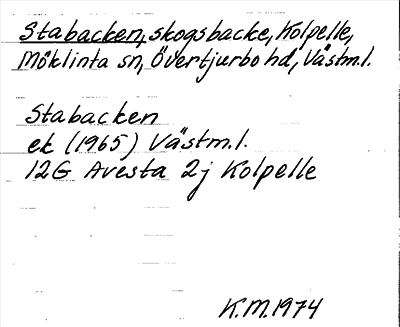 Stabacken, skogsbacke, Kolpelle,
Möklinta sn, Övertjurbo hd, Västm.l.
Stabacken
ek (1965) Västm.l.
12G Avesta 2j Kolpelle
K.M. 1974